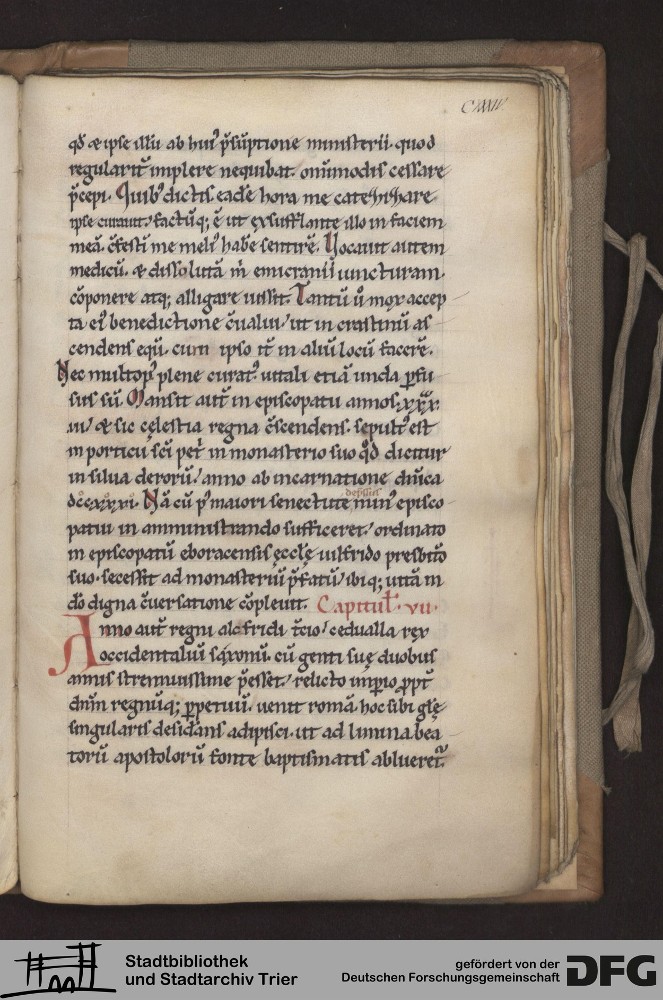 CXXXIV.
qd̄ & ipse illū ab hui᾽ p̄sūptione ministerii. quod
regularit᾽ implere nequibat. om̄imodis cessare
p̄cepi. Quib᾽ dictis eadē hora me catezizare
ipse curauit. factūq; ē ut exsufflante illo in faciem
meā. cōfestī me meli᾽ habē sentirē. Uocauit autem
medicū. & dissolutā m̄ emicranii iuncturam.
cōponere atq; alligare iussit. Tantū u᾽ mox accep
ta ei᾽ benedictione cōualui. ut in crastinū as
cendens equū. cum ipso it᾽ in aliū locū facerē.
Nec multop᾽ plene curat᾽. uitali etiā unda pfu
sus sū. Mansit aut̄ in episcopatu annos xxx.
iii. & sic cęlestia regna cōscendens. sepult᾽ est
in porticu sc̄i petri in monasterio suo qd̄ dicitur
in silua derorū. anno ab incarnatione dn̄ica
dccxxxi. Nā cū p᾽ maiori senectute min᾽ episco
patui in amministrando sufficeret. ordinato
in episcopatū eboracensis ęcclę uilfrido presbit̄o
suo. secessit ad monasteriū p̄fatū. ibiq; uitā in
dō digna cōuersatione cōpleuit. Capitul̄. vii.
Anno aut̄ regni alcfridi t᾽cio. cedualla rex
occidentaliū saxonū. cū genti suę duobus
annis strennuissime p̄esset. relicto imp̄io ppt᾽
dn̄m regnūq; ppetuū. uenit romā. hoc sibi glę
singularis desidāns adipisci. ut ad limina bea
torū apostolorū fonte baptismatis ablueret᾽.
Stadtbibliothek
und Stadtarchiv Trier
gefördert von der
Deutschen Forschungsgemeinschaft
DFG